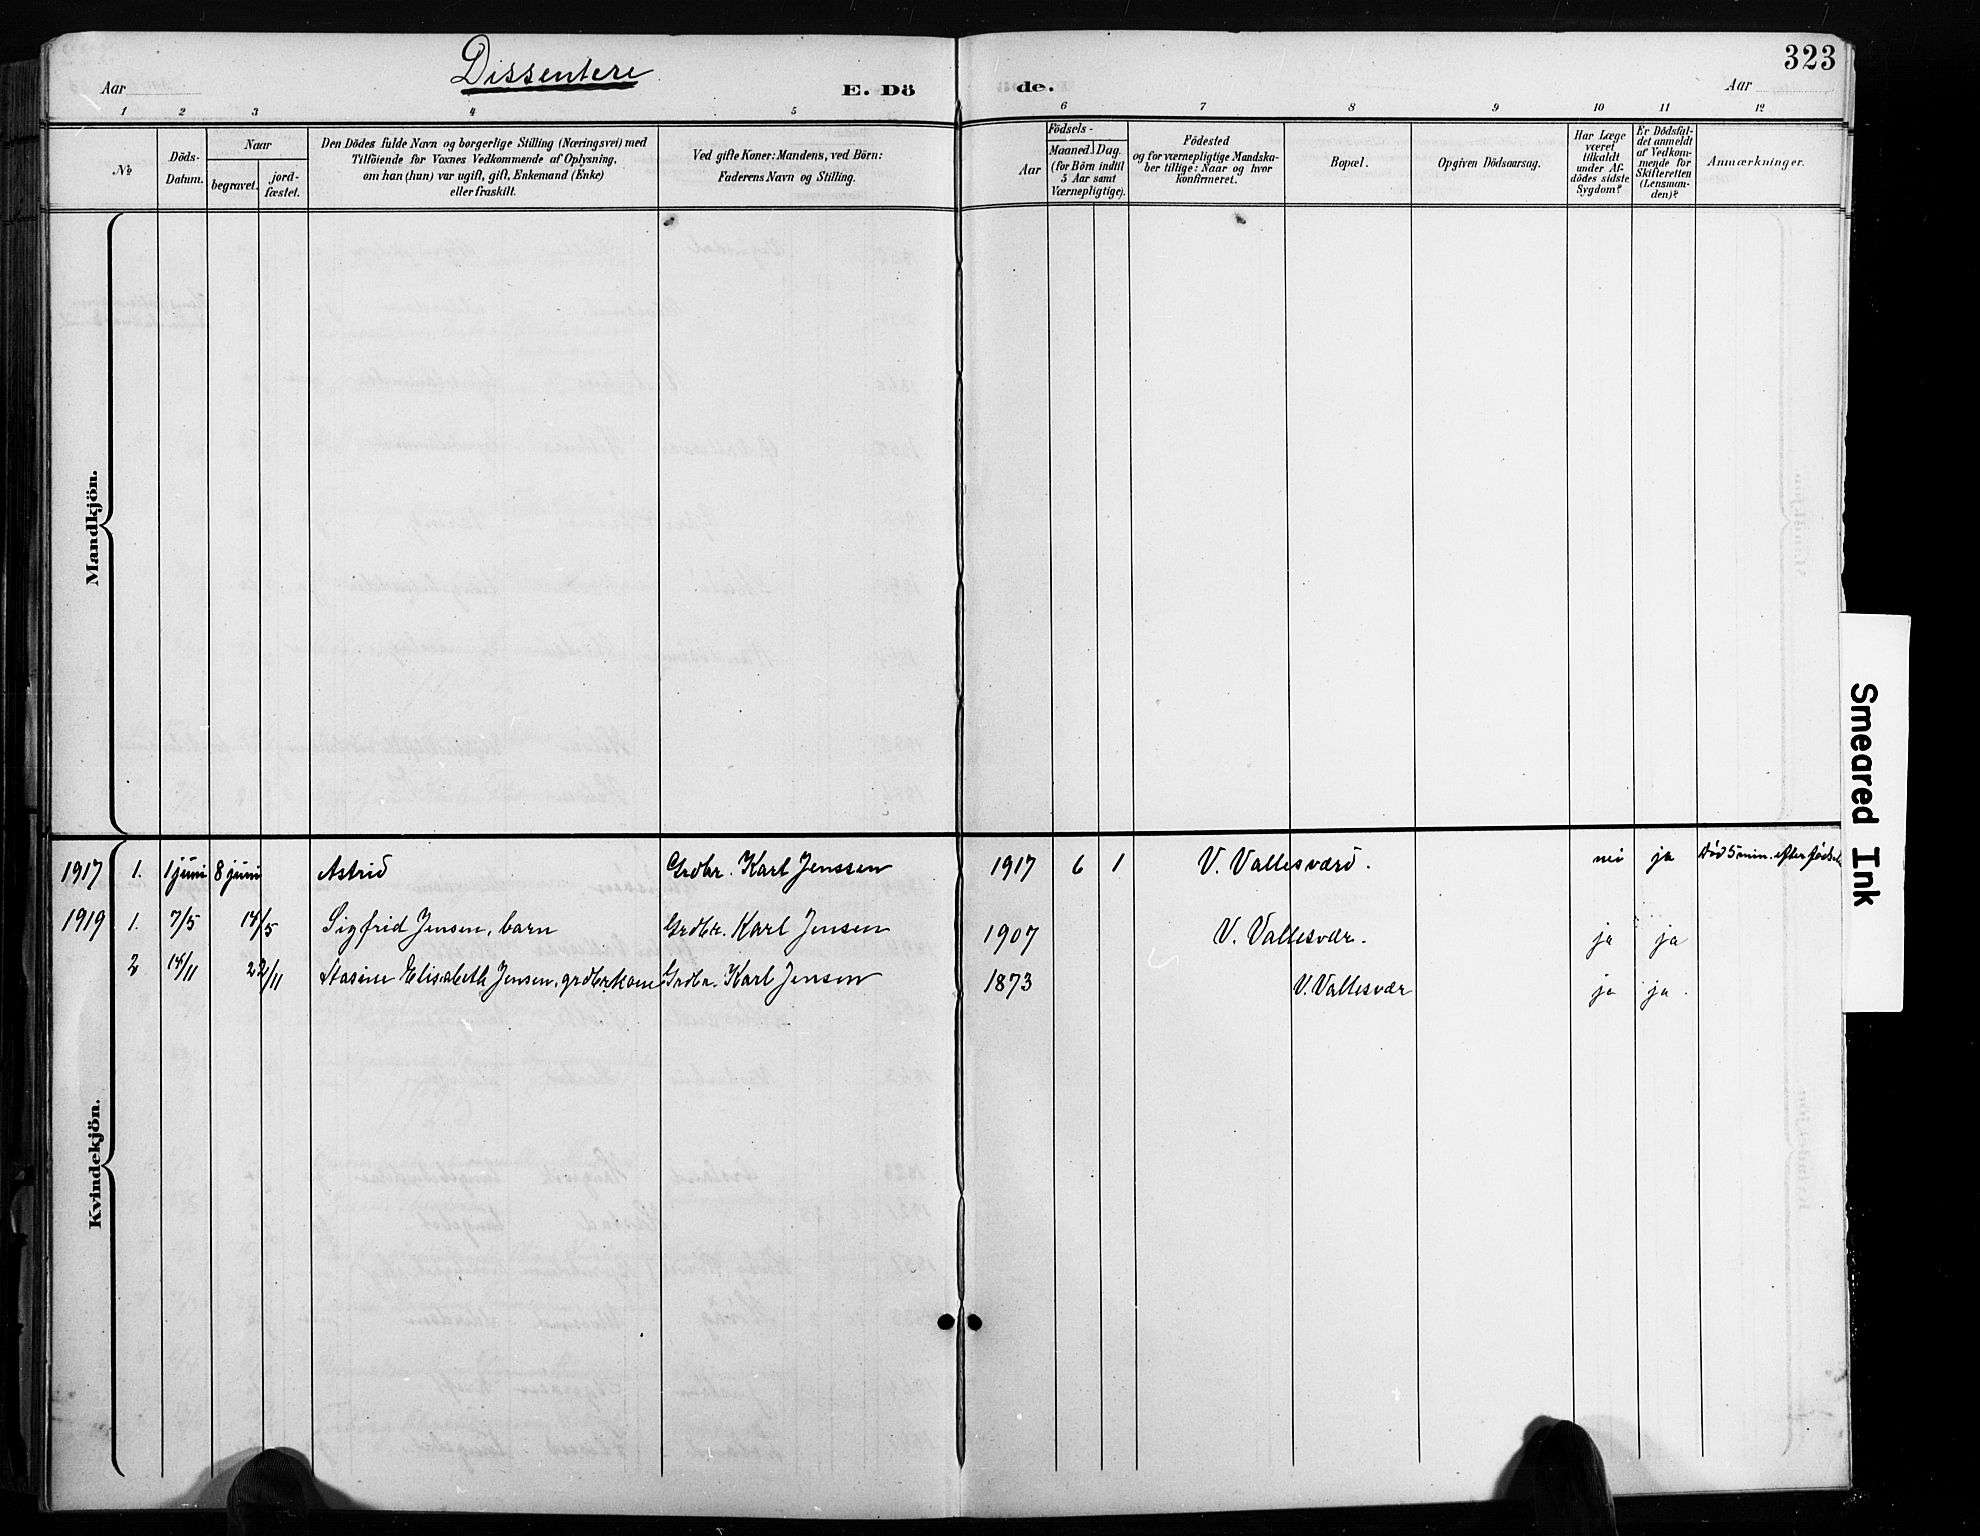 Dissentere
323
Aar
E. Dö
de.
Aar
1 2 3 4 5 6 7 8 9 10 11 12
No
Döds-
Datum.
Naar
begravet.
jord-
fæstet.
Den Dödes fulde Navn og borgerlige Stilling (Næringsvei) med
Tilföiende for Voxnes Vedkommende af Oplysning,
om han (hun) var ugift, gift, Enkemand (Enke)
eller fraskilt.
Ved gifte Koner: Mandens, ved Börn:
Faderens Navn og Stilling.
Aar
Födsels-
Maaned.
Dag.
(for Börn indtil
5 Aar samt
Værnepligtige).
Födested
og for værnepligtige Mandska-
ber tillige: Naar og hvor
konfirmeret.
Bopæl.
Opgiven Dödsaarsag.
Har Læge
været
tilkaldt
under Af-
dödes sidste
Sygdom?
Er Dödsfal-
det anmeldt
af Vedkom-
mende for
Skifteretten
(Lensman-
den)?
Anmærkninger.
Mandkjön.
1917 1. 1 juni 8 juni Astrid Grdbr. Karl Jenssen 1917 6 1 V. Vallesværd. nei ja Död 5 min. efter födsel
1919 1. 7/5 14/5 Sigfrid Jensen, barn Grdbr. Karl Jensen 1907 V. Vallesvær. ja ja
2 14/11 22/11 Stasine Elisabeth Jensen, grdbrkone Grdbr. Karl Jensen 1873 V. Vallesvær ja ja.
Kvindekjön.
Smeared Ink